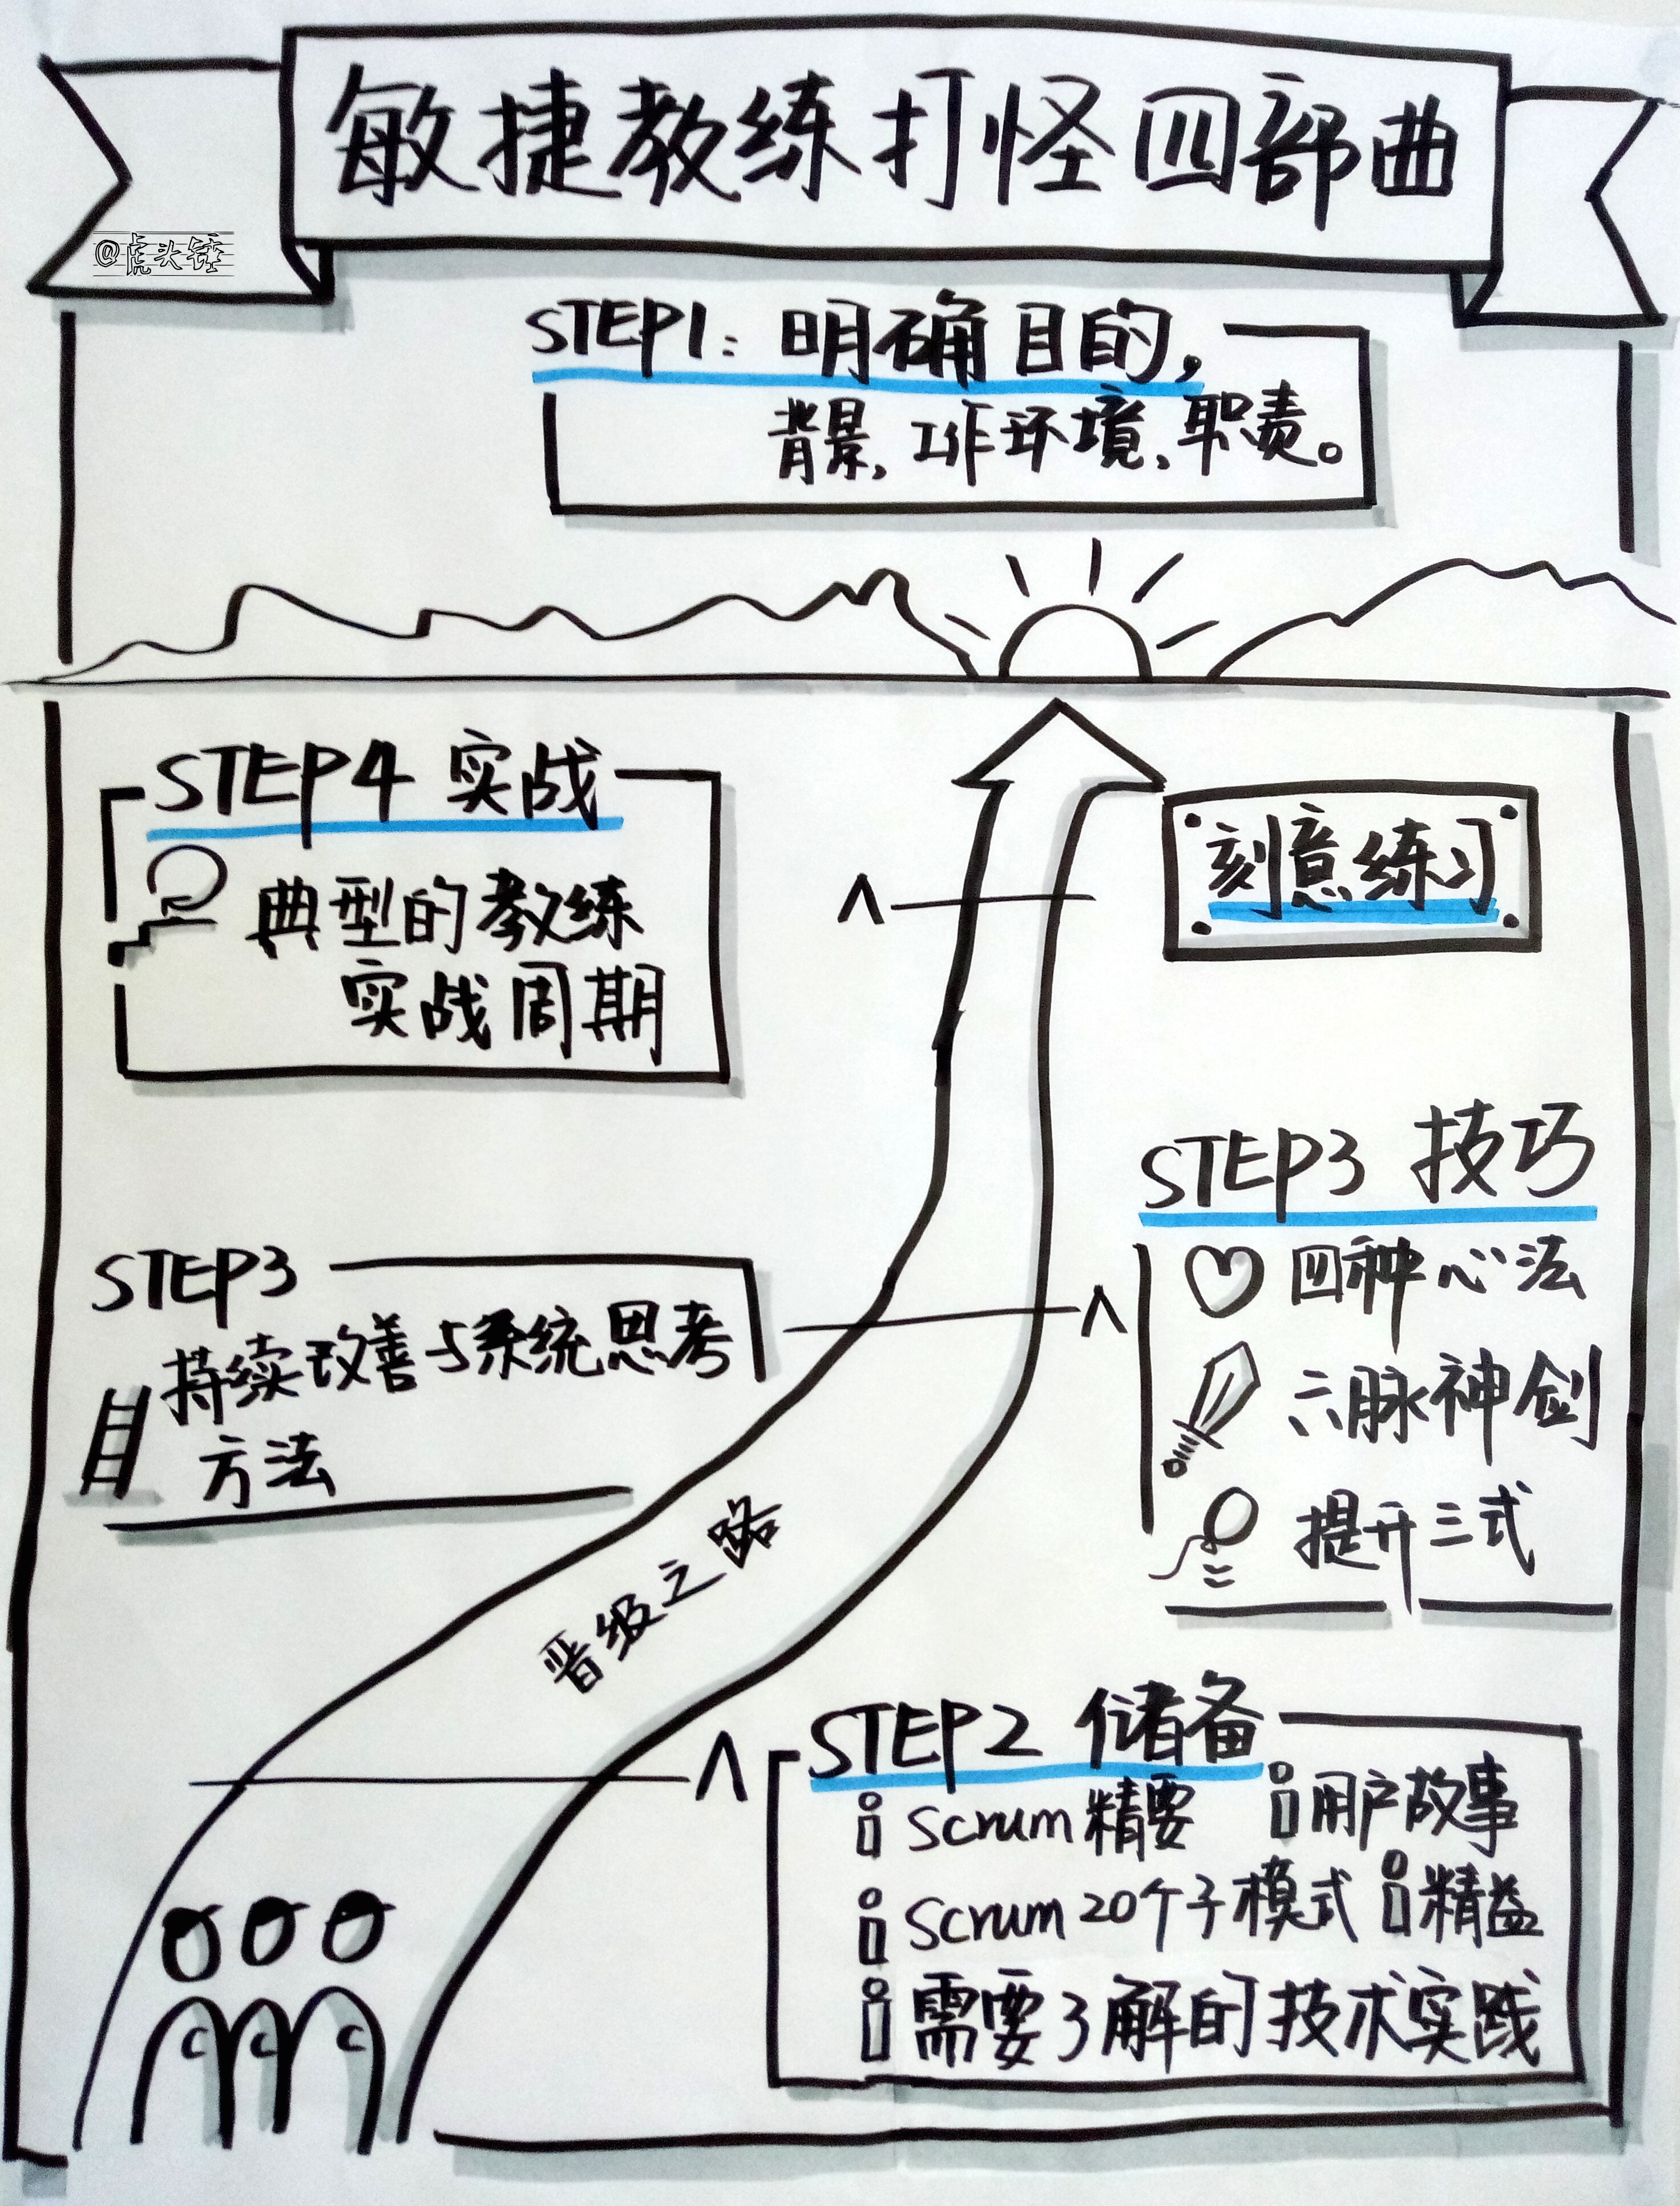 敏捷教练打怪四部曲
@虎头锤
STEP1: 明确目的,
背景,工作环境、职责。
STEP4 实战
典型的教练
实战周期
刻意练习
STEP3 技巧
四种心法
六脉神剑
提升三式
STEP3
持续改善与系统思考
方法
晋级之路
STEP2 储备
Scrum精要 用户故事
Scrum20个子模式 精益
需要了解的技术实践